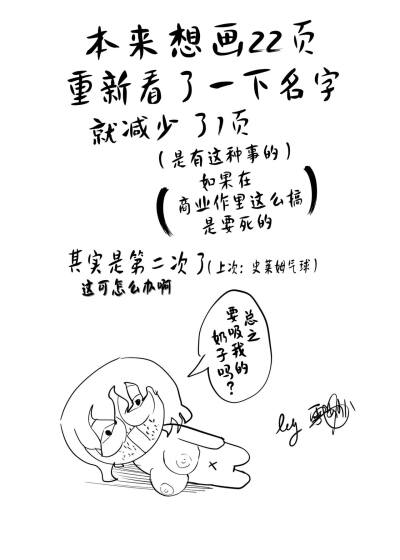 本来想画22页
重新看了一下名字
就减少了1页
(是有这种事的)
(如果在
商业作里这么搞
是要死的)
其实是第二次了(上次：史莱姆气球)
这可怎么办啊
总之
要吸我的
奶子吗？
by